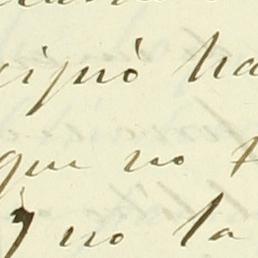 cipió ha
que no
y no la